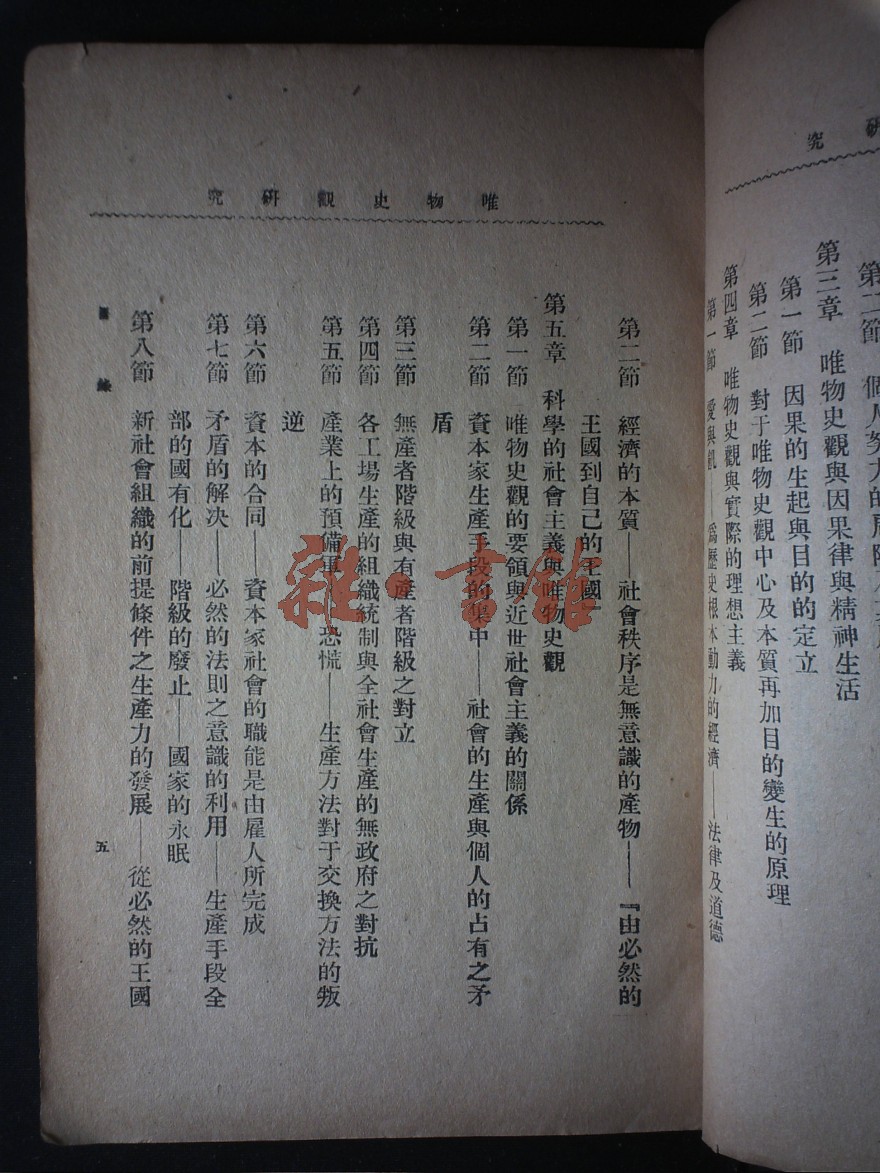 究研
第二節 個人努力的
第三章 唯物史觀與因果律與精神生活
第一節 因果的生起與目的的定立
第二節 對于唯物史觀中心及本質再加目的變生的原理
第四章 唯物史觀與實際的理想主義
第一節 愛與飢——爲歷史根本動力的經濟——法律及道德
究研觀史物唯
第二節 經濟的本質——社會秩序是無意識的產物——『由必然的
王國到自己的王國』
第五章 科學的社會主義與唯物史觀
第一節 唯物史觀的要領與近世社會主義的關係
第二節 資本家生產手段的集中——社會的生產與個人的占有之矛
盾
第三節 無產者階級與有產者階級之對立
第四節 各工場生產的組織統制與全社會生產的無政府之對抗
第五節 產業上的預備軍 恐慌——生產方法對于交換方法的叛
逆
第六節 資本的合同——資本家社會的職能是由雇人所完成
第七節 矛盾的解决——必然的法則之意識的利用——生產手段全
部的國有化——階級的廢止——國家的永眠
第八節 新社會組織的前提條件之生產力的發展——從必然的王國
目錄
五
雜·書館